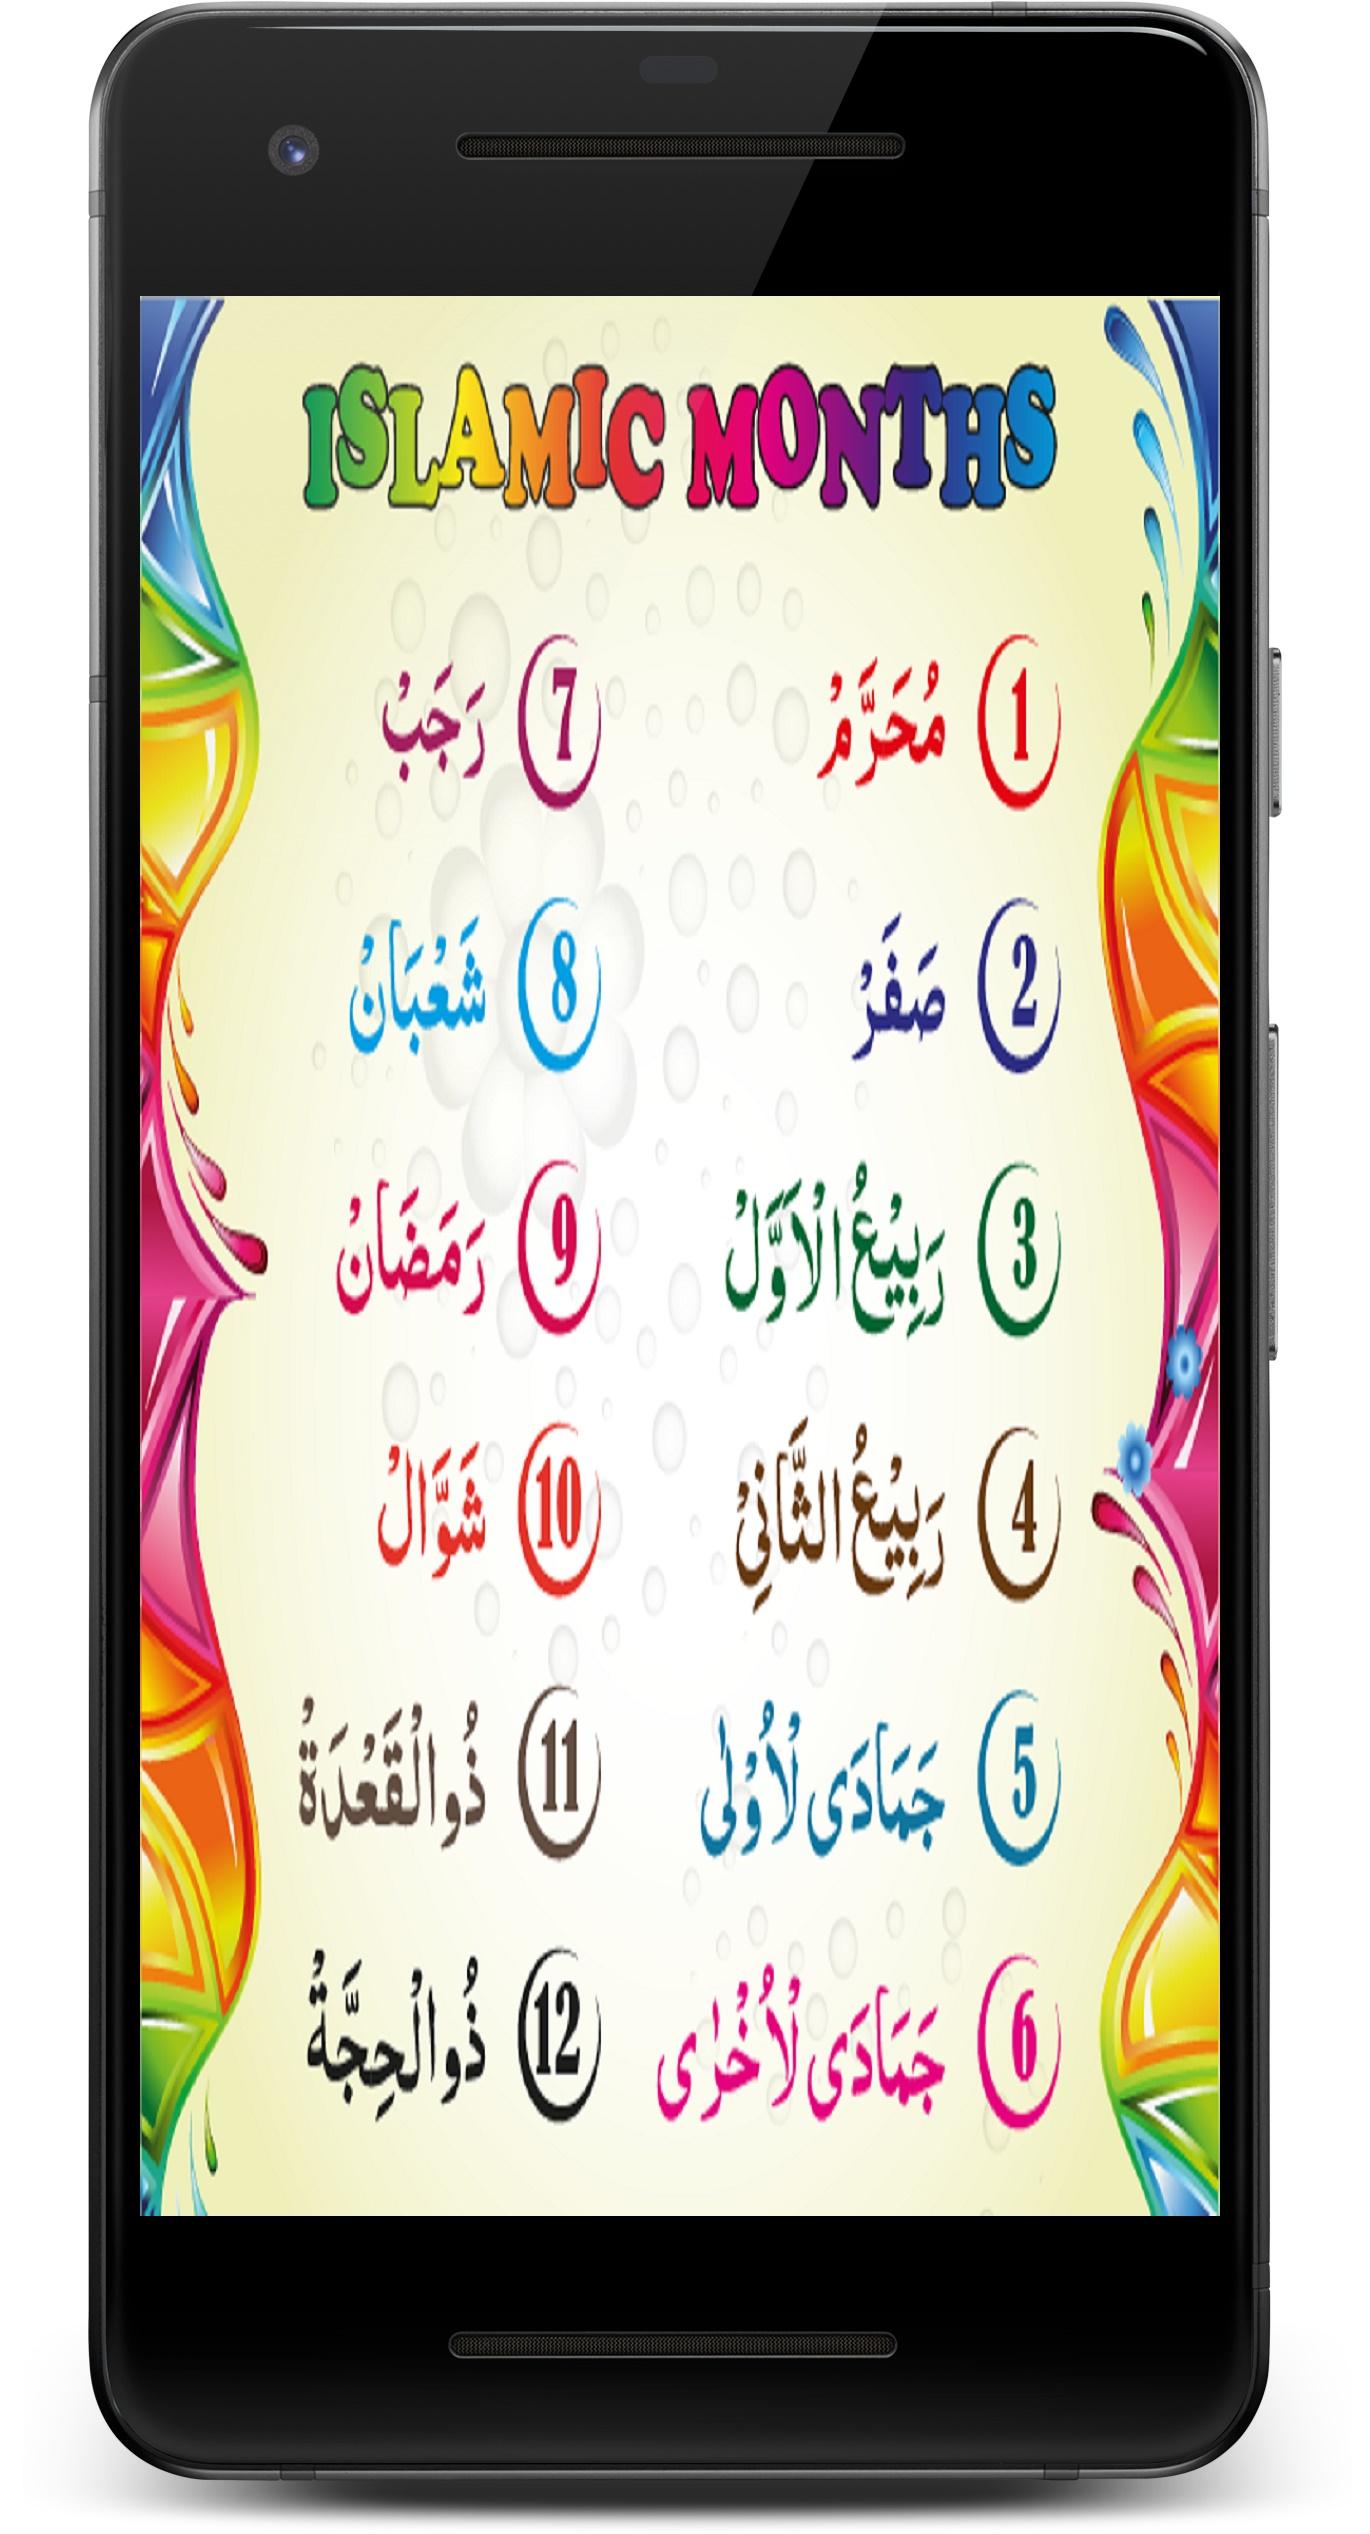 ISLAMIC MONTHS
1 مُحَرَّمْ
2 صَفَرْ
3 رَبِيْعُ الْاَوَّلْ
4 رَبِيْعُ الثَّانِيْ
5 جَمَادَى لْاُوْلٰى
6 جَمَادَى لْاُخْرٰى
7 رَجَبْ
8 شَعْبَانْ
9 رَمَضَانْ
10 شَوَّالْ
11 ذُوالْقَعْدَةْ
12 ذُوالْحِجَّةْ